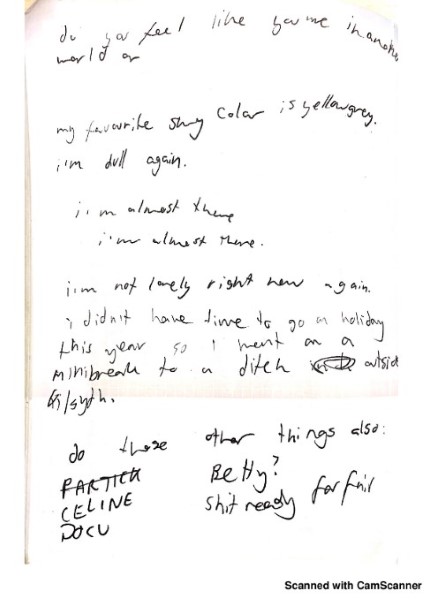 do you feel like you're in another
world or
my favourite sky color is yellowgrey.
i'm dull again.
i'm almost there
i'm almost there.
i'm not lonely right now again.
i didn't have time to go on holiday
this year so I went on a
minibreak to a ditch outside
Kilsyth.
do these other things also:
PARTICK Betty?
CELINE shit ready for fail
DOCU
Scanned with CamScanner